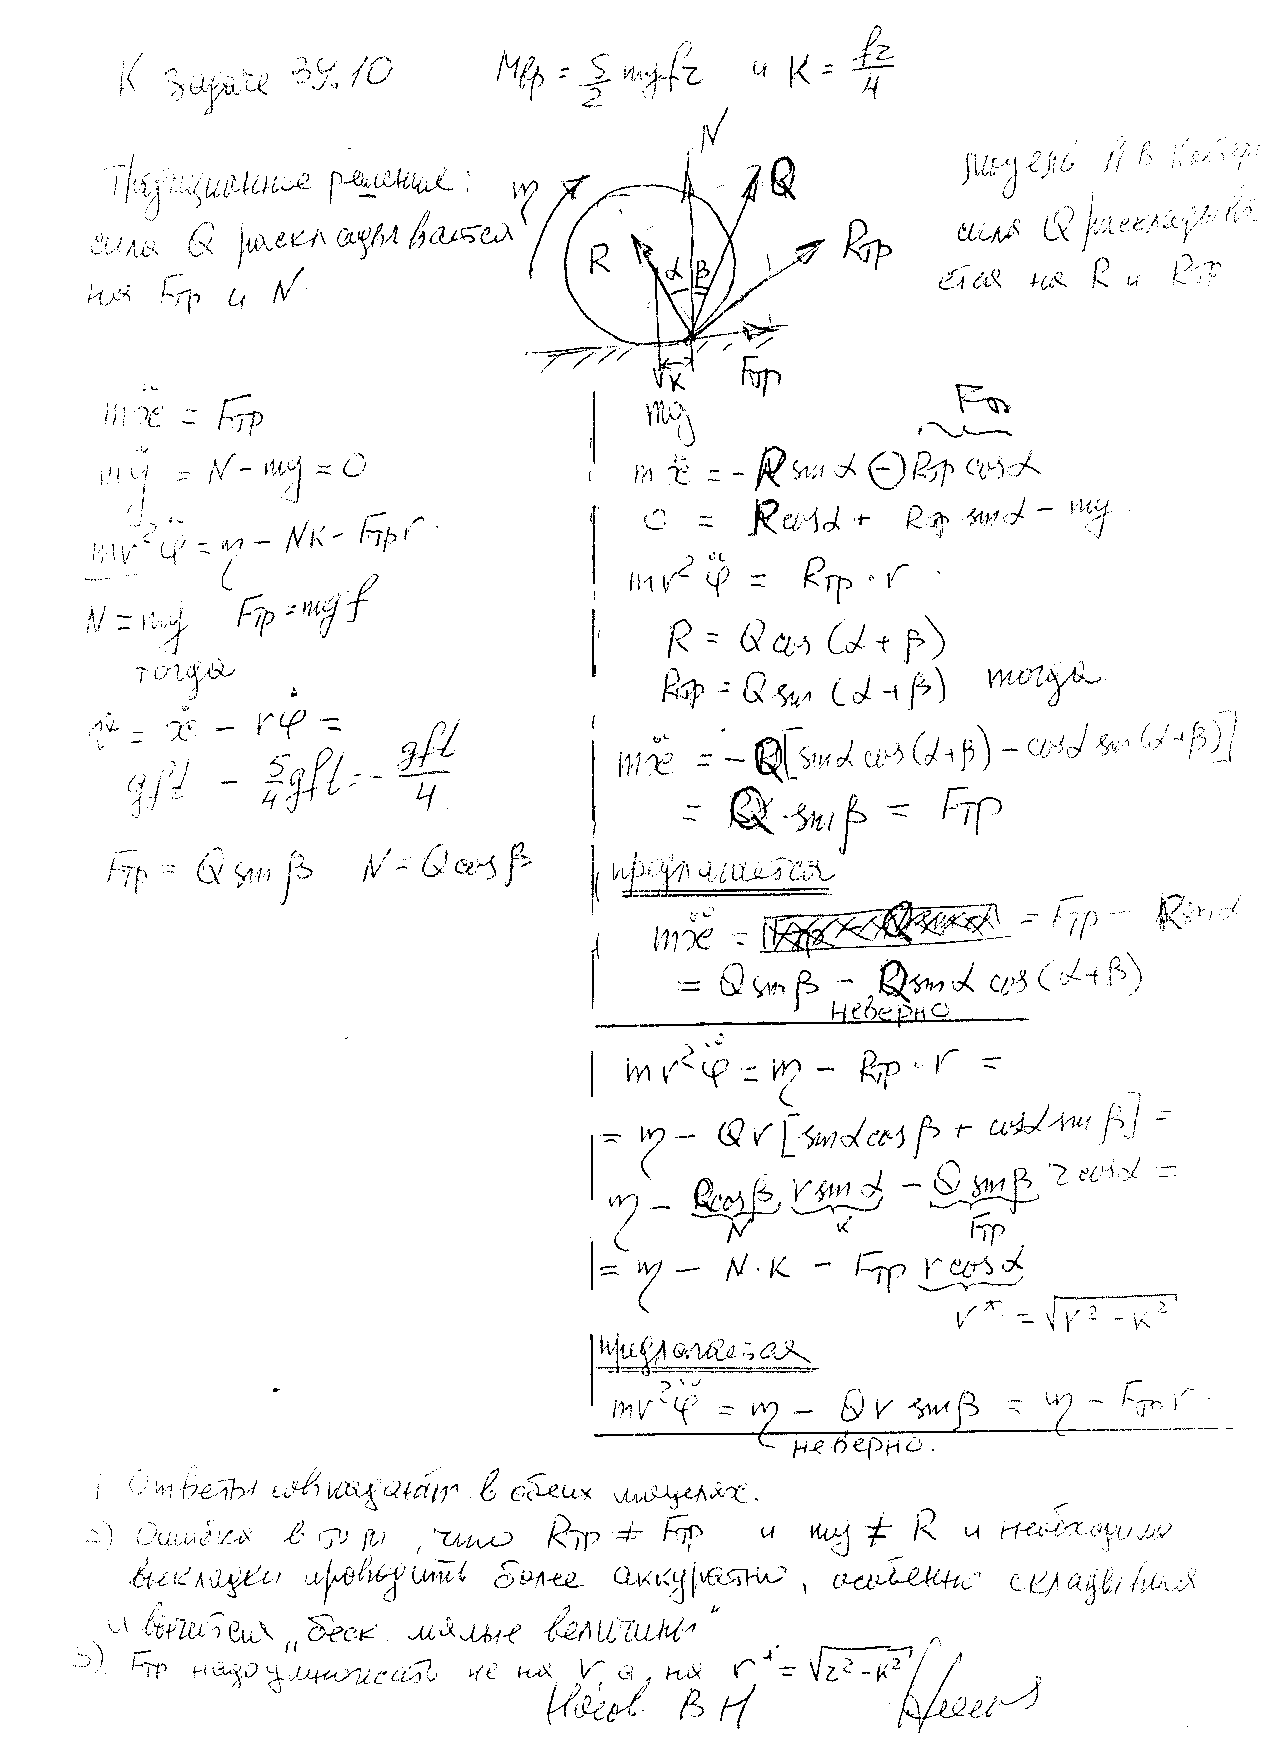 К задаче 39.10 Mвр = 5/2 mgfr и К = fr/4
Традиционное решение:
сила Q раскладывается
на Fтр и N.
N
Q
Rтр
R
α β
m
K
Fтр
mg
модель А В
сила Q раскладыва
ется на R и Rтр
mẍ = Fтр
mÿ = N - mg = 0
mr²φ̈ = m - NK - Fтр r
N = mg Fтр = mgf
тогда
= ẋ - rφ̇ =
gft - 5/4 gft = - gft/4
Fтр = Q sin β N = Q cos β
Fтр
mẍ = - R sin α ⊖ Rтр cos α
0 = R cos α + Rтр sin α - mg
mr²φ̈ = Rтр · r
R = Q cos (α + β)
Rтр = Q sin (α + β) тогда
mẍ = - Q[sin α cos (α + β) - cos α sin (α + β)]
= Q · sin β = Fтр
предлагается
mẍ = = Fтр - R sin α
= Q sin β - Q sin α cos (α + β)
неверно
mr²φ̈ = m - Rтр · r =
= m - Qr [sin α cos β + cos α sin β] =
m - Q cos β r sin α - Q sin β r cos α =
N K Fтр
= m - N · K - Fтр r cos α
r* = √r² - K²
предлагается
mr²φ̈ = m - Qr sin β = m - Fтр r
неверно.
1 Ответы совпадают в обеих моделях.
2) Ошибка в том, что Rтр ≠ Fтр и mg ≠ R и необходимо
выкладки проводить более аккуратно, особенно складывая
и "беск. малые величины"
3). Fтр надо умножать не на r, а на r* = √r² - K²
Носов В Н